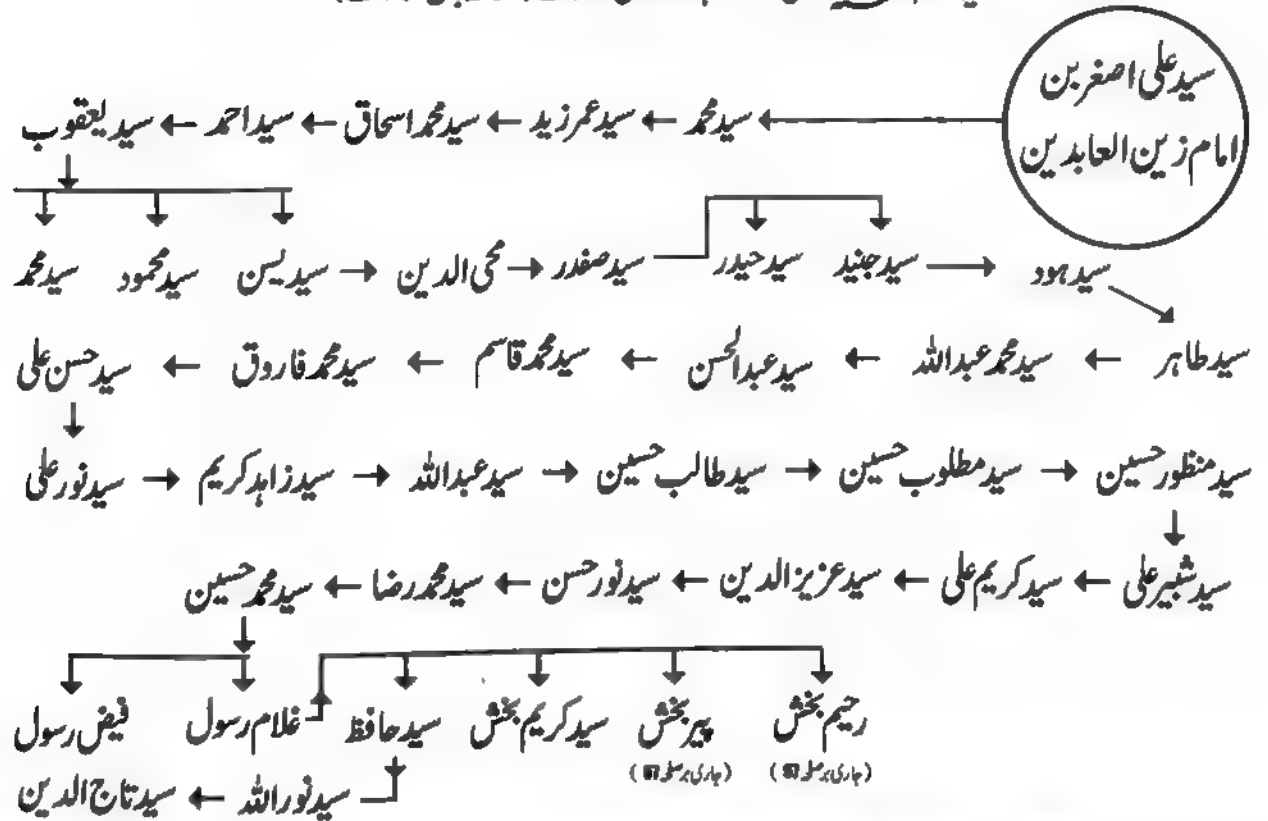 سید علی اصغر بن
امام زین العابدین
سید محمد ← سید عمر زید ← سید محمد اسحاق ← سید احمد ← سید یعقوب
سید ہود ← سید جنید سید حیدر سید صفدر ← محی الدین ← سید یٰسن سید محمود سید محمد
سید طاہر ← سید محمد عبداللہ ← سید عبدالحسن ← سید محمد قاسم ← سید محمد فاروق ← سید حسن علی
سید منظور حسین ← سید مطلوب حسین ← سید طالب حسین ← سید عبداللہ ← سید زاہد کریم ← سید نور علی
سید شبیر علی ← سید کریم علی ← سید عزیز الدین ← سید نور حسن ← سید محمد رضا ← سید محمد حسین
رحیم بخش پیر بخش سید کریم بخش سید حافظ غلام رسول فیض رسول
(جاری بر صفحہ) (جاری بر صفحہ)
سید نور اللہ ← سید تاج الدین